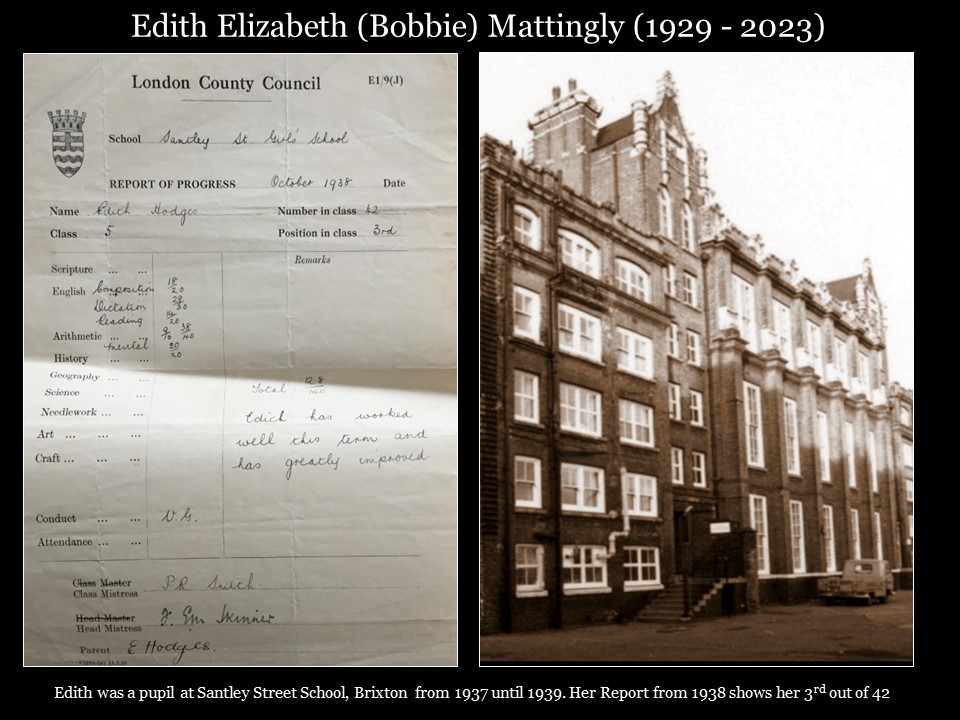 Edith Elizabeth (Bobbie) Mattingly (1929 - 2023)
London County Council
E1/9(J)
School Santley St Girls' School
REPORT OF PROGRESS October 1938 Date
Name Edith Hodges Number in class 42
Class 5 Position in class 3rd
Remarks
Scripture ... ...
English Composition ... 18/20
Dictation 29/30
Reading 14/20
Arithmetic ... ... 9/10 38/40
mental 20/20
History ... ...
Geography ... ...
Science ... ...
Total 128/140
Needlework ... ...
Edith has worked
Art ... ... ...
well this term and
Craft ... ... ...
has greatly improved
Conduct ... ... V.G.
Attendance ... ...
Class Master
Class Mistress P.R. Smith
Head Master
Head Mistress F. Em Skinner
Parent E Hodges.
Edith was a pupil at Santley Street School, Brixton from 1937 until 1939. Her Report from 1938 shows her 3rd out of 42